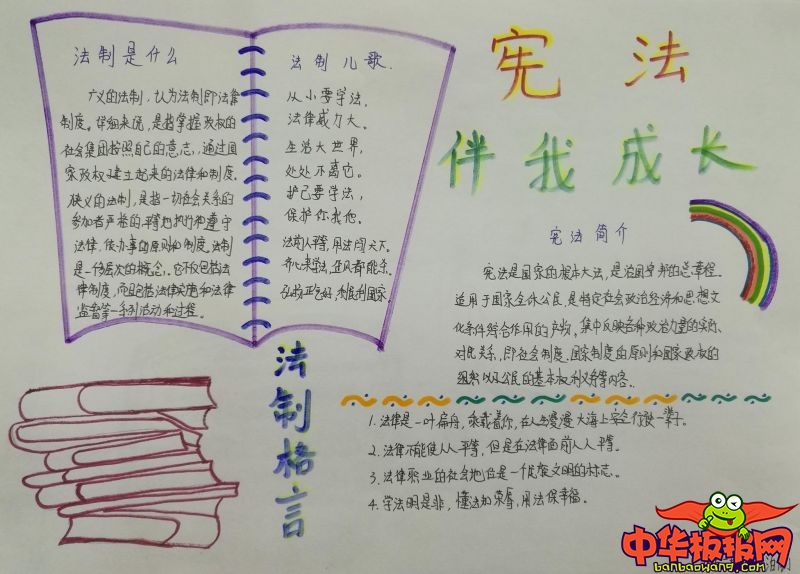 宪法
伴我成长
法制是什么
广义的法制,认为法制即法律
制度。详细来说,是指掌握政权的
社会集团按照自己的意志,通过国
家政权建立起来的法律和制度。
狭义的法制,是指一切社会关系的
参加者严格的平等地执行和遵守
法律,依办事的原则和制度。法制
是一个多层次的概念,它不仅包括法
律制度,而且包括法律实施和法律
监督等一系列活动和过程。
法制儿歌.
从小要学法,
法律威力大。
生活大世界,
处处不离它。
护己要学法,
保护你我他。
法前人平等,用法闯天下。
齐心来学法,正风都能杀。
弘扬正气好,利民利国家
宪法简介
宪法是国家的根本大法,是治国安邦的总章程。
适用于国家全体公民,是特定社会政治经济和思想文
化条件综合作用的产物,集中反映各种政治力量的实际
对比关系,即社会制度、国家制度的原则和国家政权的
组织以及公民的基本权利义务等内容。
法制格言
1.法律是一叶扁舟,乘载着你,在人生漫漫大海上安全行驶
2.法律不能使人人平等,但是在法律面前人人平等。
3.法律职业的社会地位是一个民族文明的标志。
4.学法明是非,懂法知荣辱,用法保幸福。
中华板报网
banbaowang.com